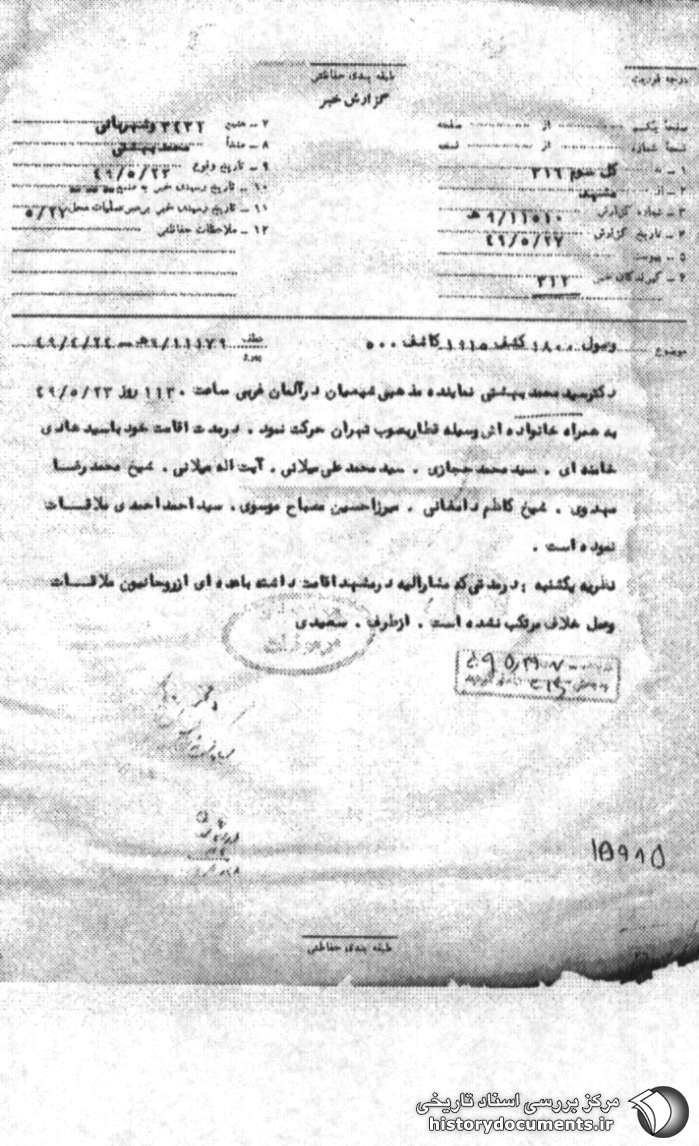 طبقه بندی حفاظتی
درجه فوریت
گزارش خبر
صفحهٔ یکم از صفحه
نسخهٔ شماره از نسخه
۱ ـ به کل سوم ۳۱۶
۲ ـ از مشهد
۳ ـ شماره گزارش ۹/۱۱۵۱۰ هـ
۴ ـ تاریخ گزارش ۴۹/۵/۲۷
۵ ـ پیوست
۶ ـ گیرندگان خبر ۳۱۲
۷ ـ منبع ۳۴۳۲ و شهربانی
۸ ـ منشأ محمد بهشتی
۹ ـ تاریخ وقوع ۴۹/۵/۲۳
۱۰ ـ تاریخ رسیدن خبر به منبع
۱۱ ـ تاریخ رسیدن خبر برهبر عملیات محل ۵/۲۷
۱۲ ـ ملاحظات حفاظتی
موضوع
عطف
پیرو
۹/۱۱۱۷۹هـ ـ ۴۹/۴/۲۴
دکتر سید محمد بهشتی نماینده مذهبی شیعیان در آلمان غربی ساعت ۱۱۳۰ روز ۴۹/۵/۲۳
به همراه خانواده اش وسیله قطار بصوب تهران حرکت نمود . در مدت اقامت خود با سید هادی
خامنه ای . سید محمد حجازی . سید محمد علی میلانی . آیت اله میلانی . شیخ محمد رضا
مهدوی . شیخ کاظم دامغانی . میرزا حسین مصباح موسوی . سید احمد احمدی ملاقات
نموده است .
نظریه یکشنبه : در مدتی که مشارالیه در مشهد اقامت داشته با عده ای از روحانیون ملاقات
وعمل خلاف مرتکب نشده است . از طرف . سعیدی
۱۵۹۸۵
طبقه بندی حفاظتی
مرکز بررسی اسناد تاریخی
historydocuments.ir